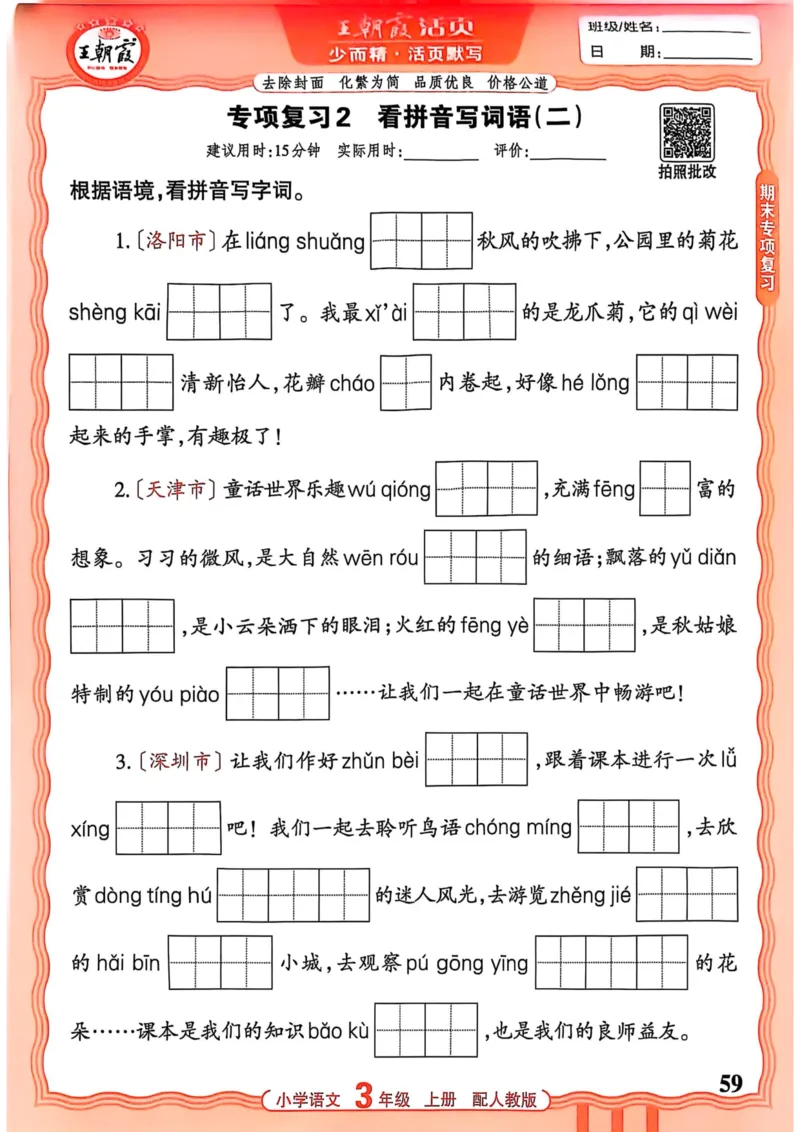 王朝霞
王朝霞活页
少而精·活页默写
班级/姓名:
日 期:
去除封面 化繁为简 品质优良 价格公道
专项复习2 看拼音写词语(二)
建议用时:15分钟 实际用时: 评价:
拍照批改
期末专项复习
根据语境,看拼音写字词。
1.〔洛阳市〕在liáng shuǎng 秋风的吹拂下,公园里的菊花
shèng kāi 了。我最xǐ'ài 的是龙爪菊,它的qì wèi
清新怡人,花瓣cháo 内卷起,好像hé lǒng
起来的手掌,有趣极了!
2.〔天津市〕童话世界乐趣wú qióng ,充满fēng 富的
想象。习习的微风,是大自然wēn róu 的细语;飘落的yǔ diǎn
,是小云朵洒下的眼泪;火红的fēng yè ,是秋姑娘
特制的yóu piào ……让我们一起在童话世界中畅游吧!
3.〔深圳市〕让我们作好zhǔn bèi ,跟着课本进行一次lǚ
xíng 吧!我们一起去聆听鸟语chóng míng ,去欣
赏dòng tíng hú 的迷人风光,去游览zhěng jié
的hǎi bīn 小城,去观察pú gōng yīng 的花
朵……课本是我们的知识bǎo kù ,也是我们的良师益友。
59
小学语文 3年级 上册 配人教版